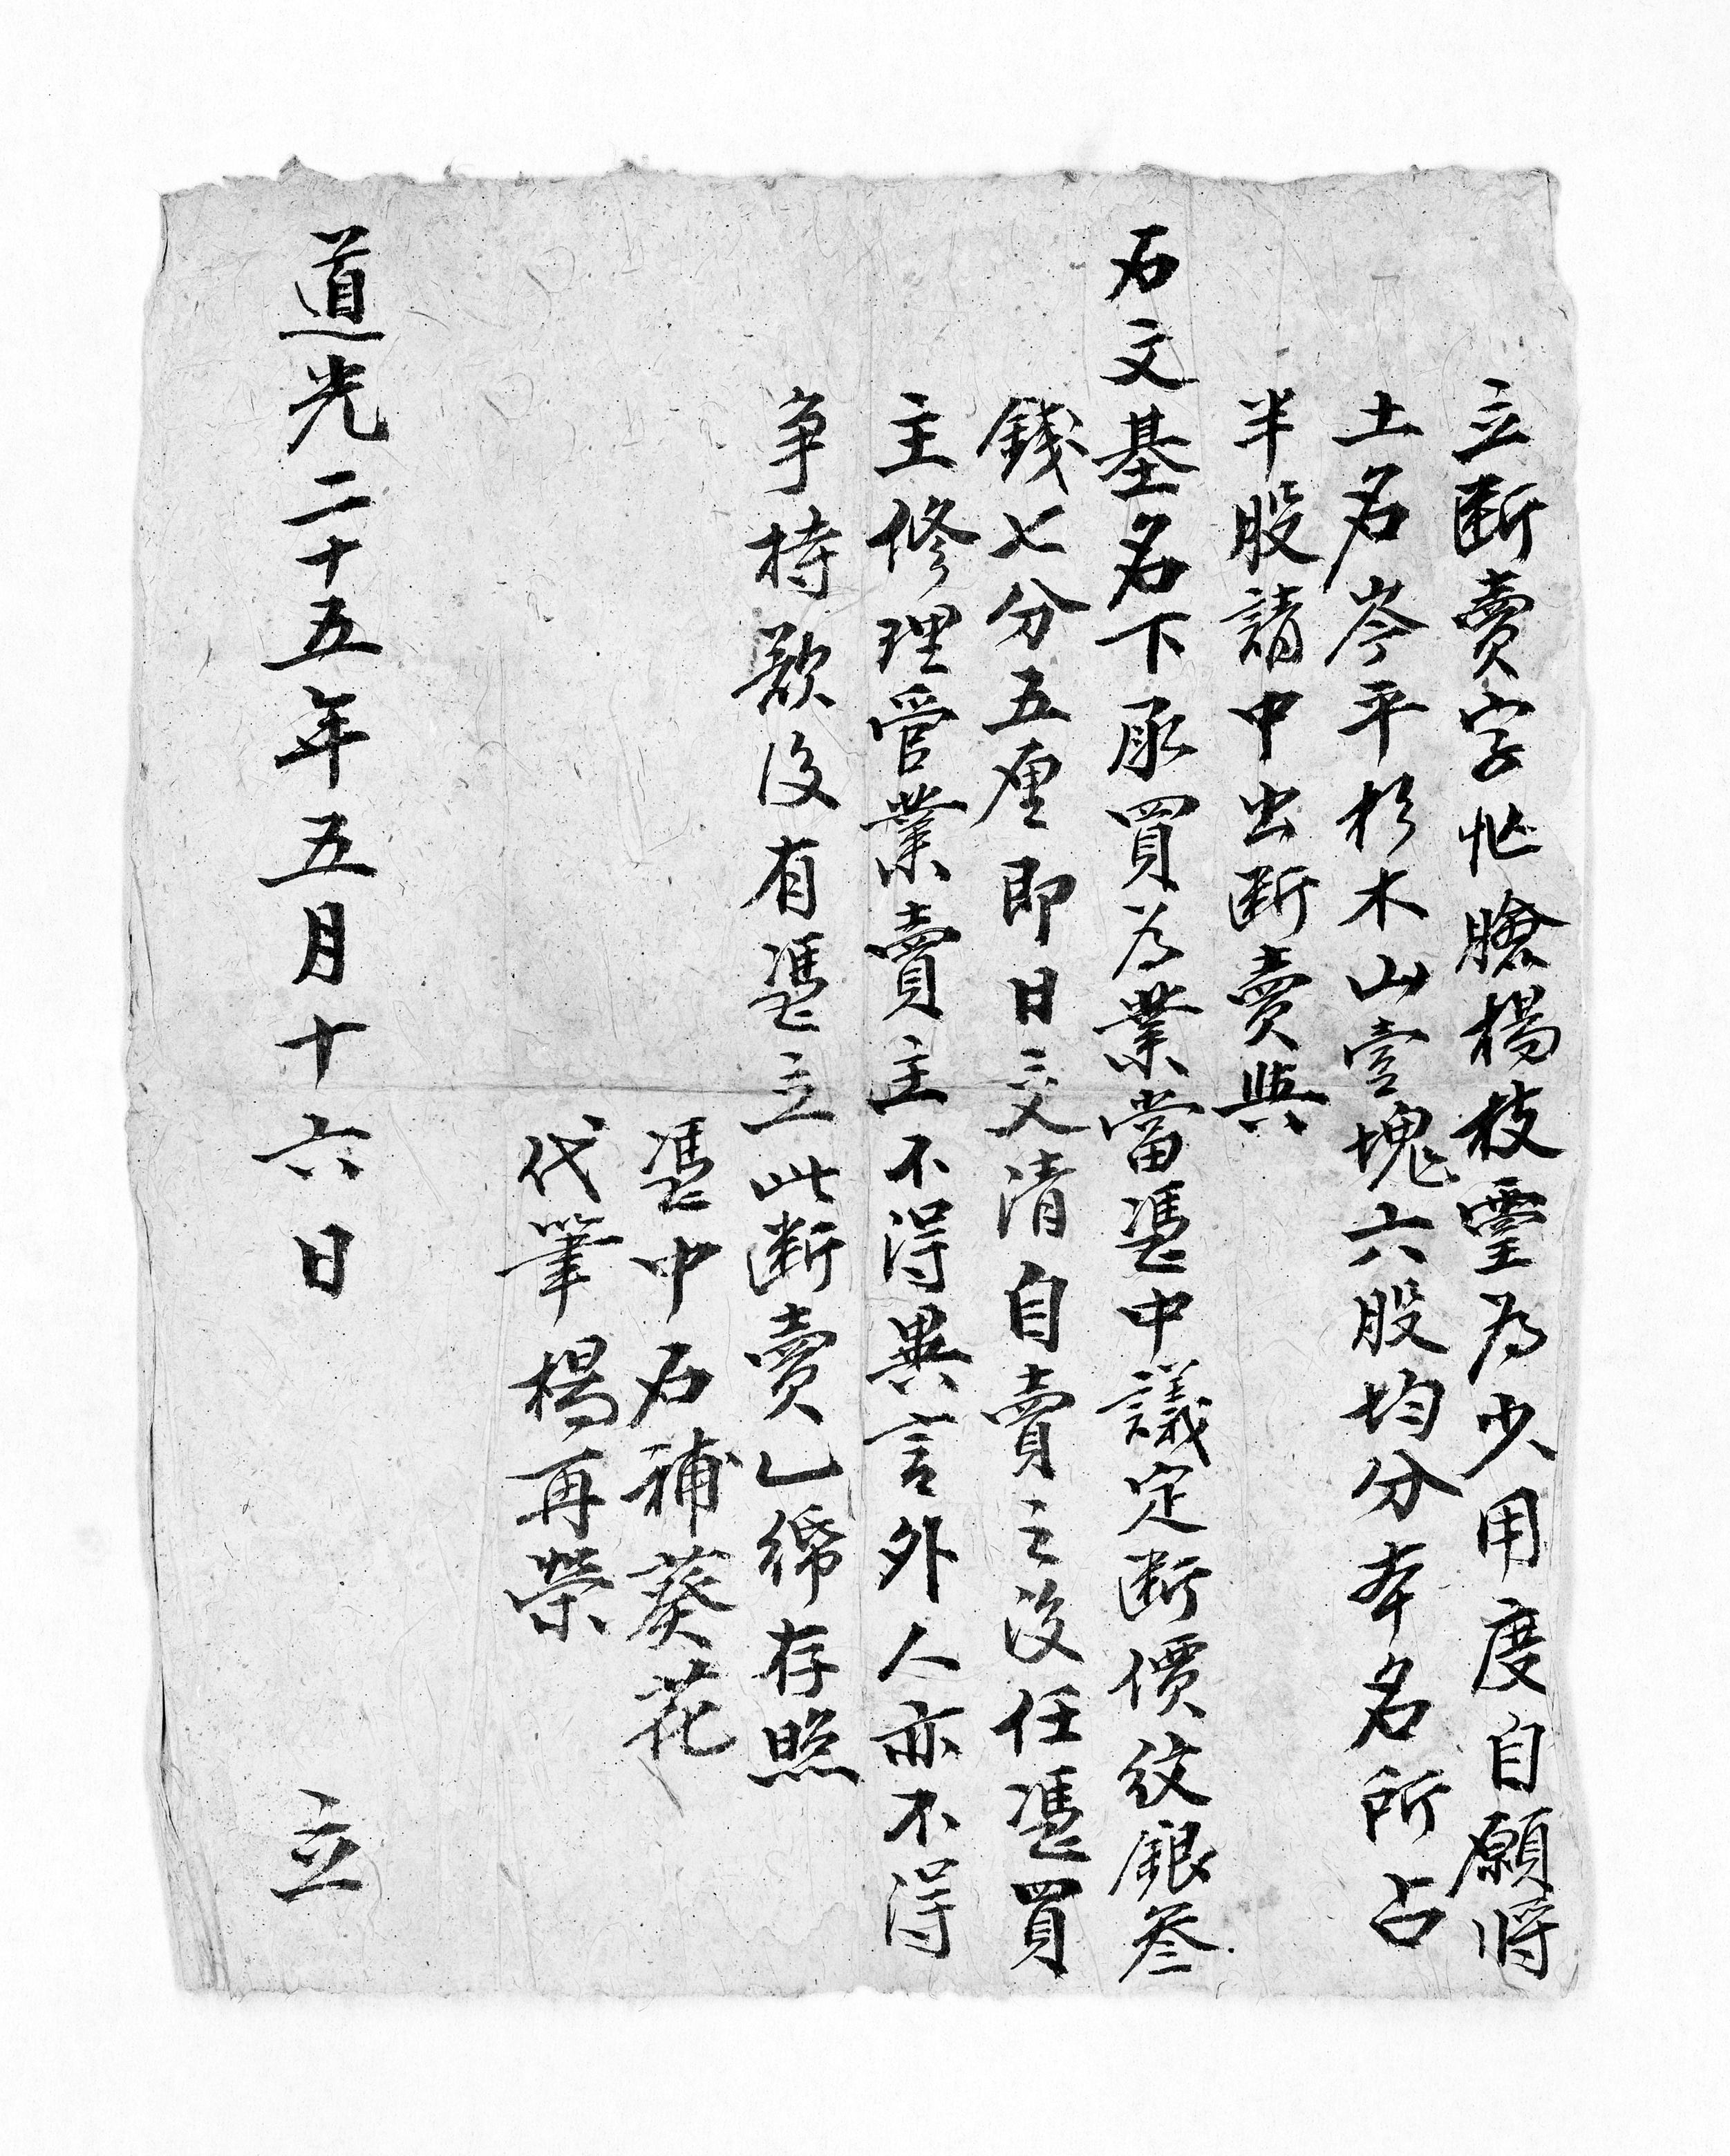 立断賣字忚膾楊枝𤫊為少用度自願將
土名岑平杉木山壹塊六股均分夲名所占
半股請中出断賣與
石文基名下承買为業當凴中議定断價紋銀叁
錢七分五厘即日交清自賣之後任凴買
主修理管業賣主不得異言外人亦不得
争持欲後有凴立此断賣乙𥿄存照
凴中石補葵花
代筆楊再榮
道光二十五年五月十六日 立